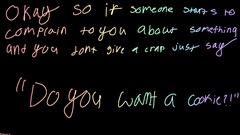 Okay so if someone starts to
complain to you about something
and you dont give a crap just say
"Do you want a cookie?!"